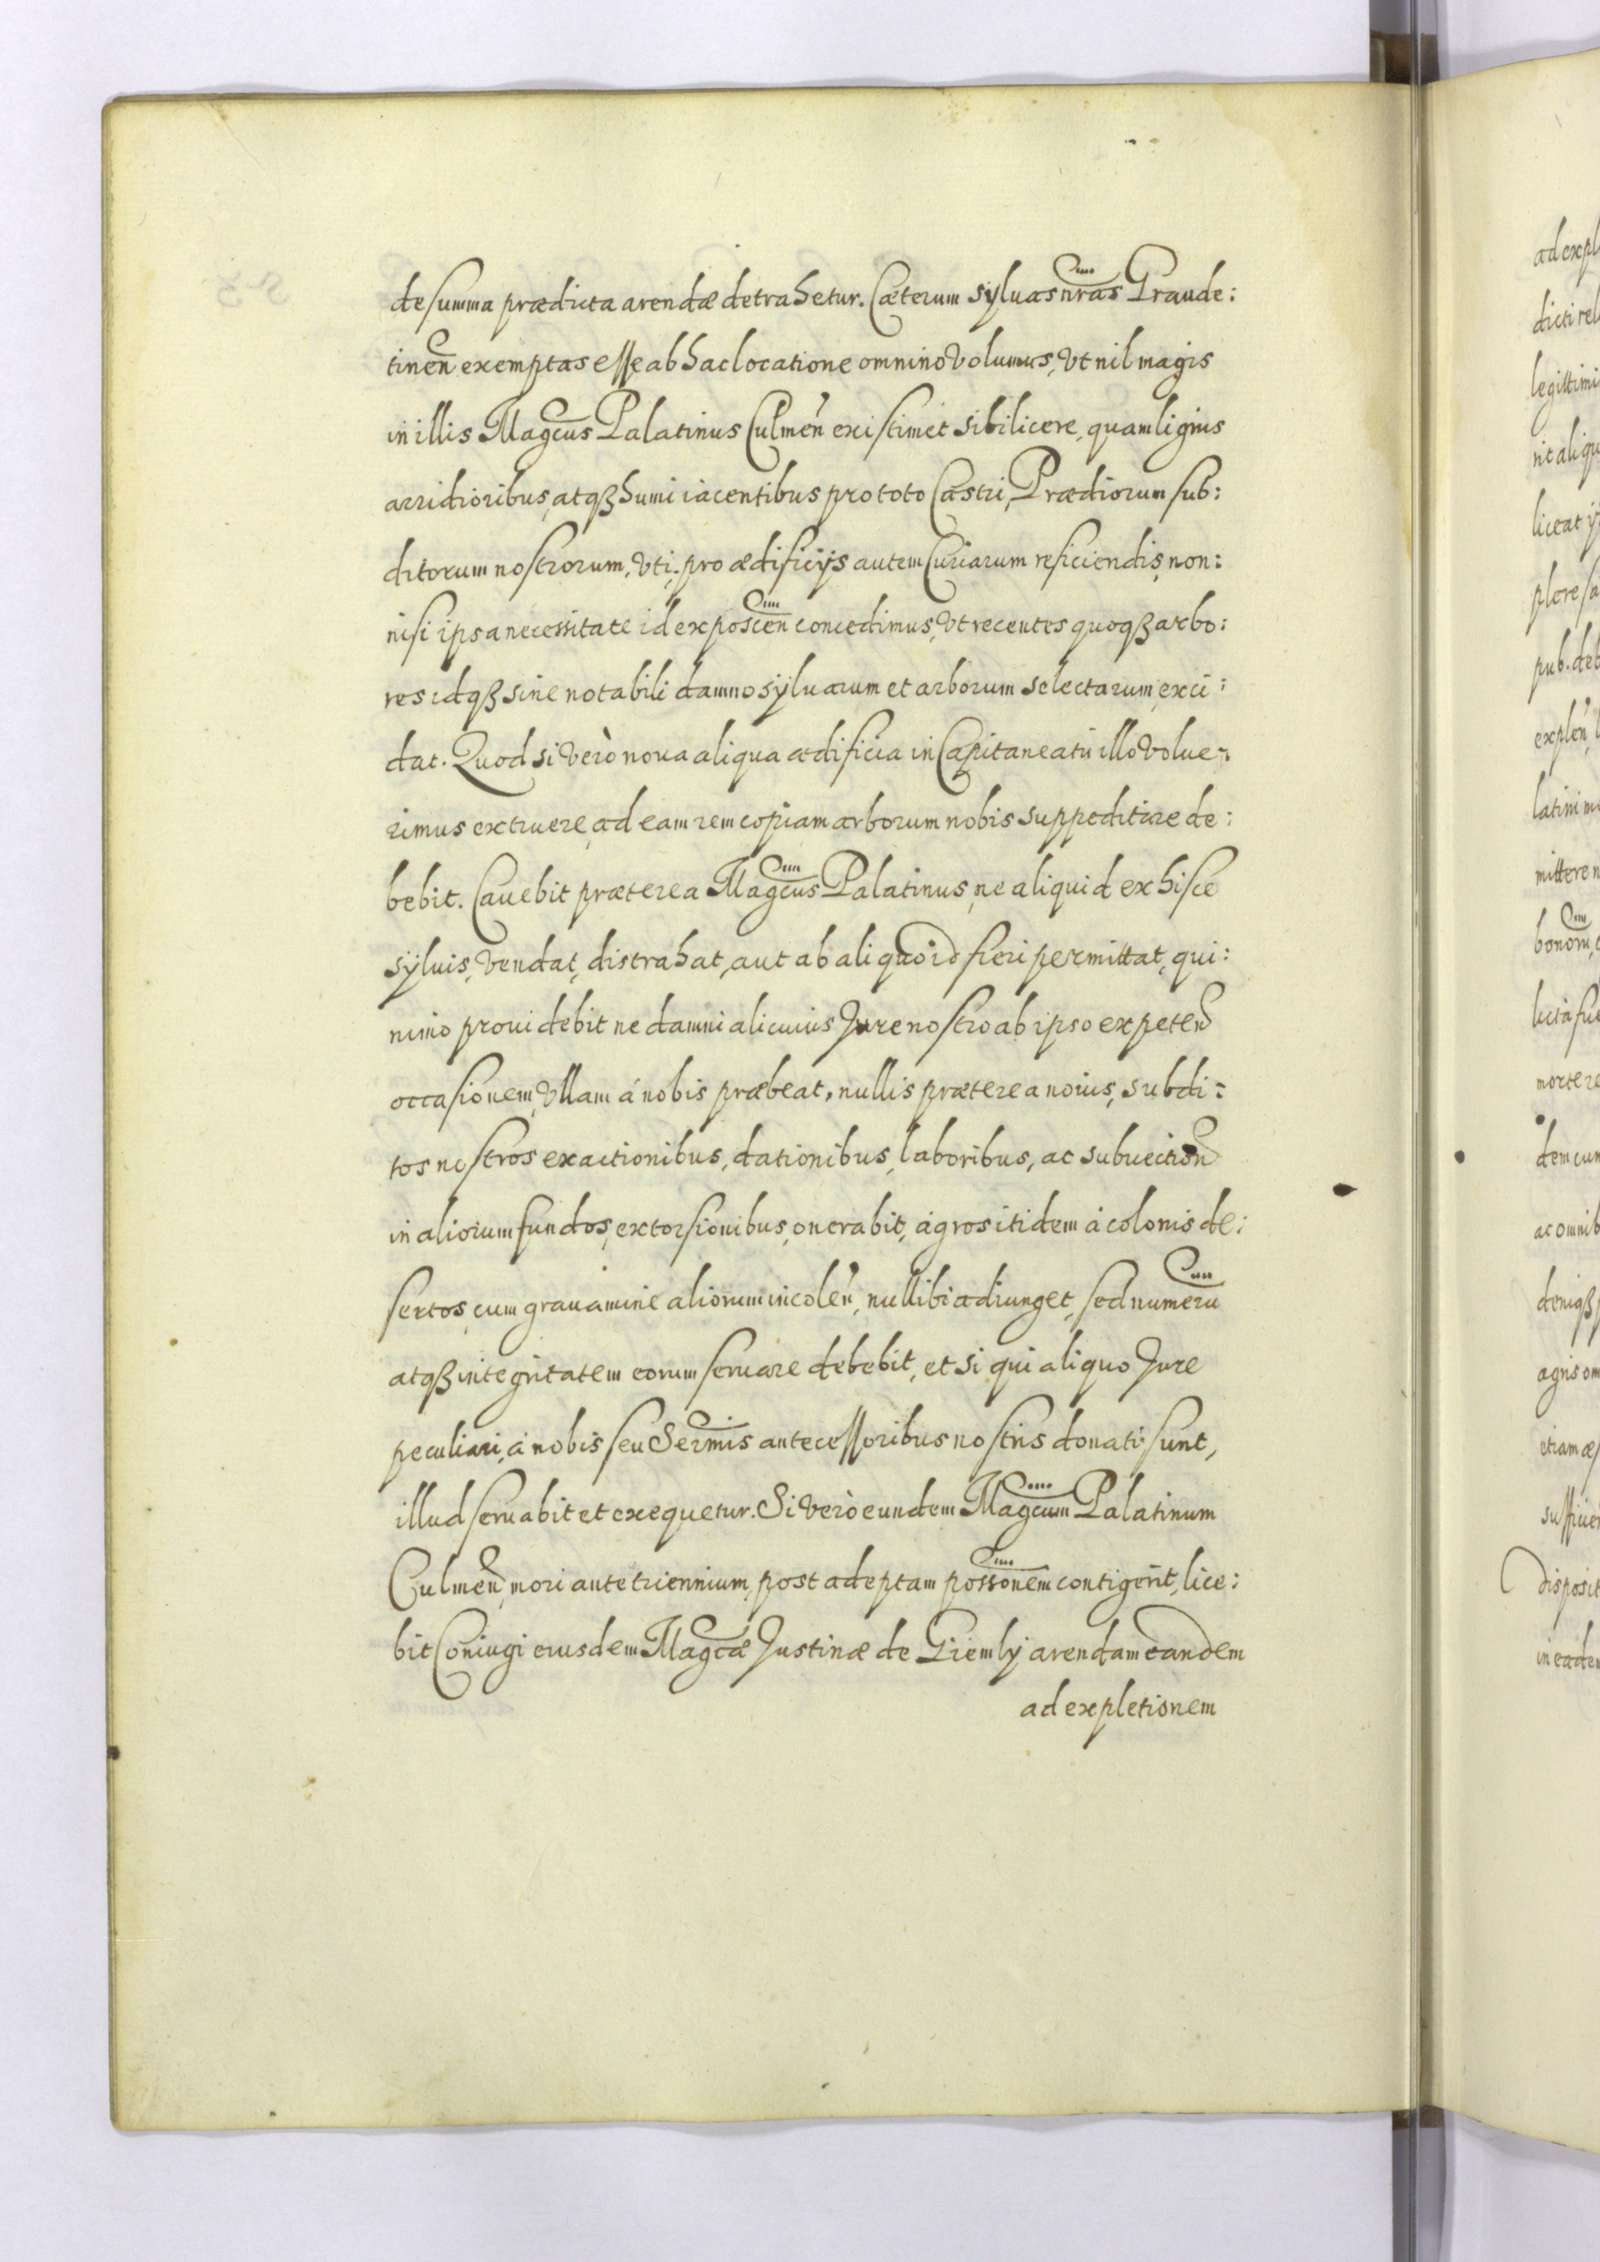 de summa prædicta arendæ detrahetur. Cæterum sylvas nras Graude:
tinen exemptas esse ab hac locatione omnino volumus, vt nil magis
in illis Magcus Palatinus Culmen existimet sibi licere, quam lignis
arridioribus, atqȝ humi iacentibus pro toto Castri, Prædiorum sub:
ditorum nostrorum, vti, pro ædificijs autem Curiarum reficiendis, non:
nisi ipsa necessitate id exposcen concedimus, vt recentes quoqȝ arbo:
res idqȝ sine notabili damno syluarum et arborum selectarum, exci:
dat. Quod si verò noua aliqua ædificia in Capitaneatu illo volue:
rimus extruere, ad eam rem copiam arborum nobis suppeditare de:
bebit. Cauebit præterea Magcus Palatinus, ne aliquid ex hisce
syluis, vendat, distrahat, aut ab aliquo id fieri permittat, qui:
nimo prouidebit ne damni alicuius Jure nostro ab ipso expeten
occasionem, vllam á nobis præbeat, nullis præterea noius, subdi:
tos nostros exactionibus, dationibus, laboribus, ac subuection
in aliorum fundos, extorsionibus, onerabit, agros itidem á colonis de:
sertos, cum grauamine aliorum incolen, nullibi adiunget, sed numeru
atqȝ integritatem eorum seruare debebit, et si qui aliquo Jure
peculiari, á nobis seu Sermis antecessoribus nostris donati sunt,
illud seruabit et exequetur. Si verò eundem Magcum Palatinum
Culmen, mori ante triennium, post adeptam possonem contigerit, lice:
bit Coniugi eiusdem Magcæ Justinæ de Giemly arendam eandem
ad expletionem